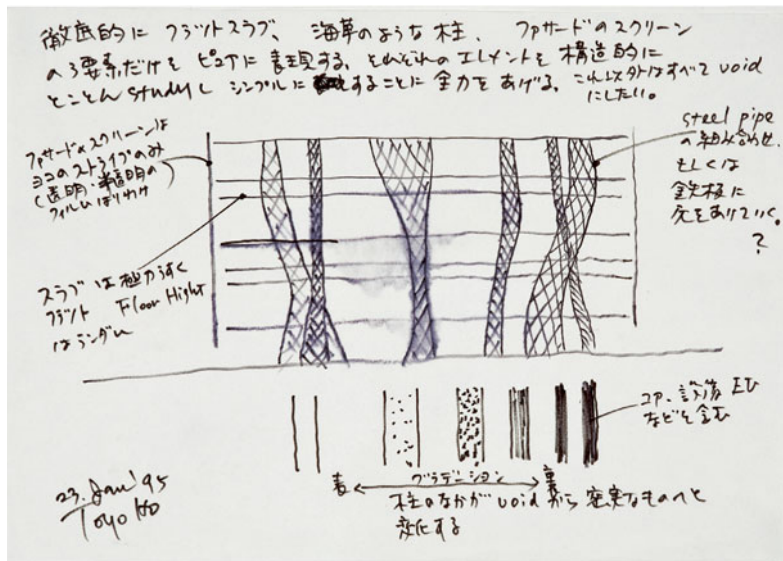 徹底的に フラットスラブ、海草のような柱、ファサードのスクリーン
の3要素だけを ピュアに 表現する。それぞれの エレメントを 構造的に
とことん studyし シンプルに することに 全力を あげる。これ以外はすべて void
にしたい。
ファサードのスクリーンは
ヨコのストライプのみ
(透明・半透明の
フィルムはりわけ
スラブは極力うすく
フラット Floor Hight
はランダム
steel pipe
の組み合わせ、
もしくは
鉄板に
穴をあけていく。
?
コア、設備 EV
などを含む
表 グラデーション 裏
柱のなかが void から 密実なものへと
変化する
23. Jan' 95
Toyo Ito